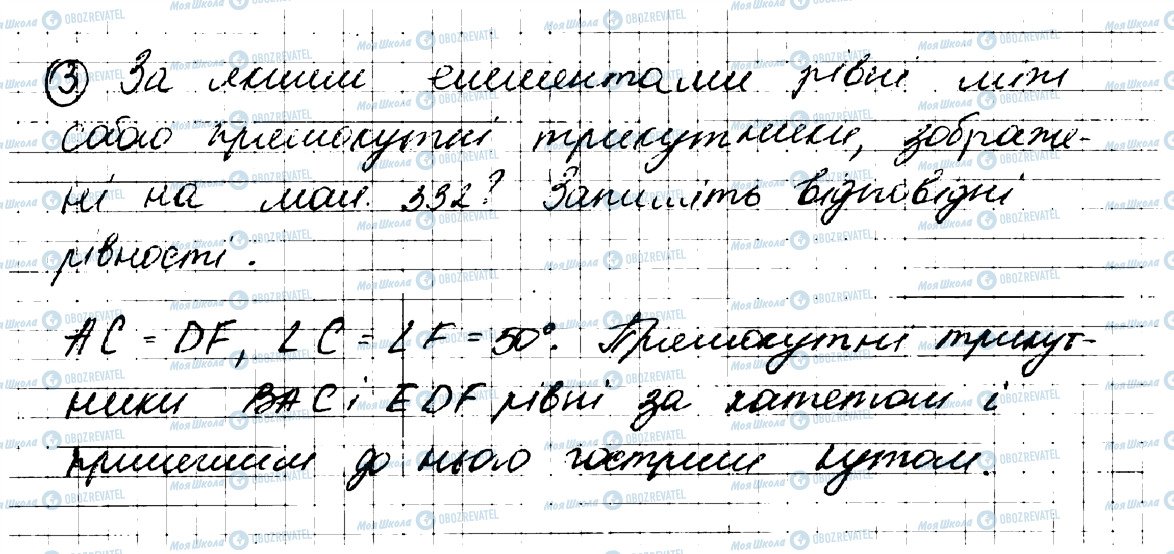 3) За якими елементами рівні між
собою прямокутні трикутники, зображе-
ні на мал. 332? Запишіть відповідні
рівності.
AC = DF, ∠C = ∠F = 50°. Прямокутні трикут-
ники BAC і EDF рівні за катетом і
прилеглим до нього гострим кутом.